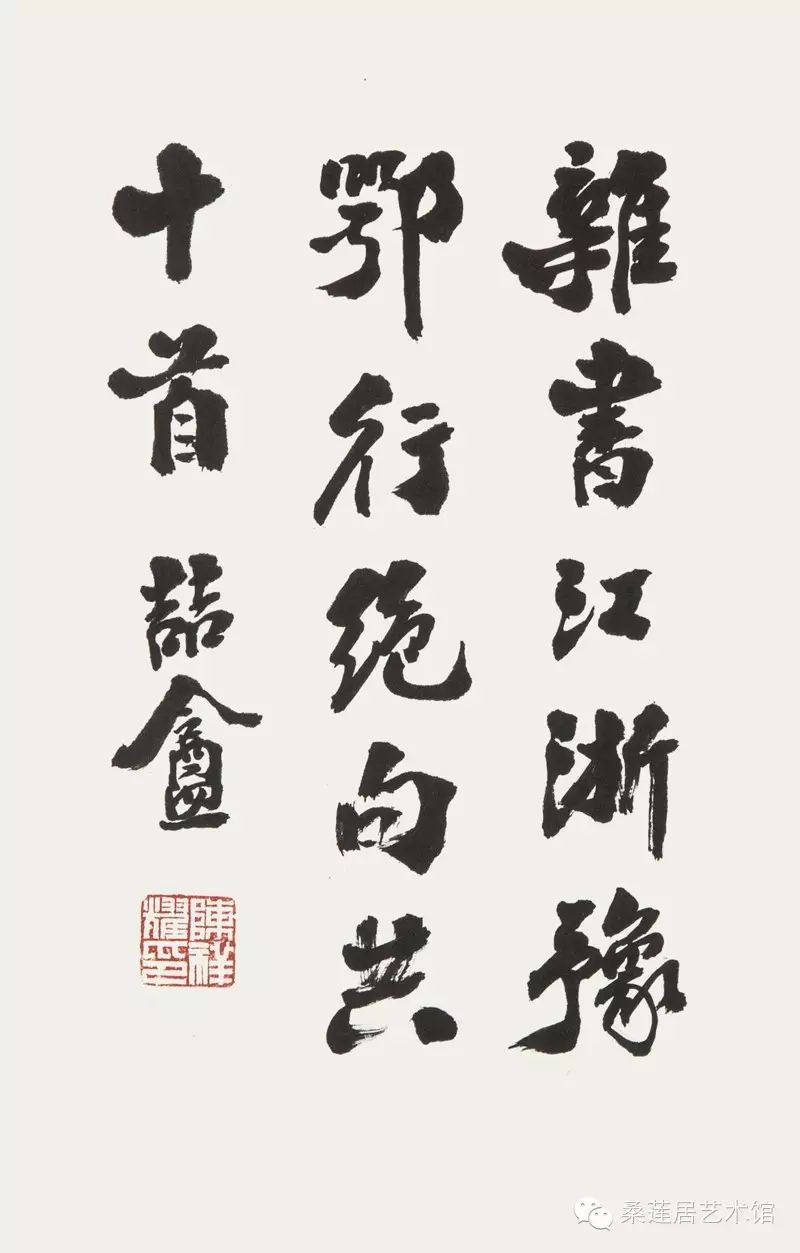 雜書江浙豫
鄂行绝句共
十首 喆盦
陳祥耀印
桑莲居艺术馆